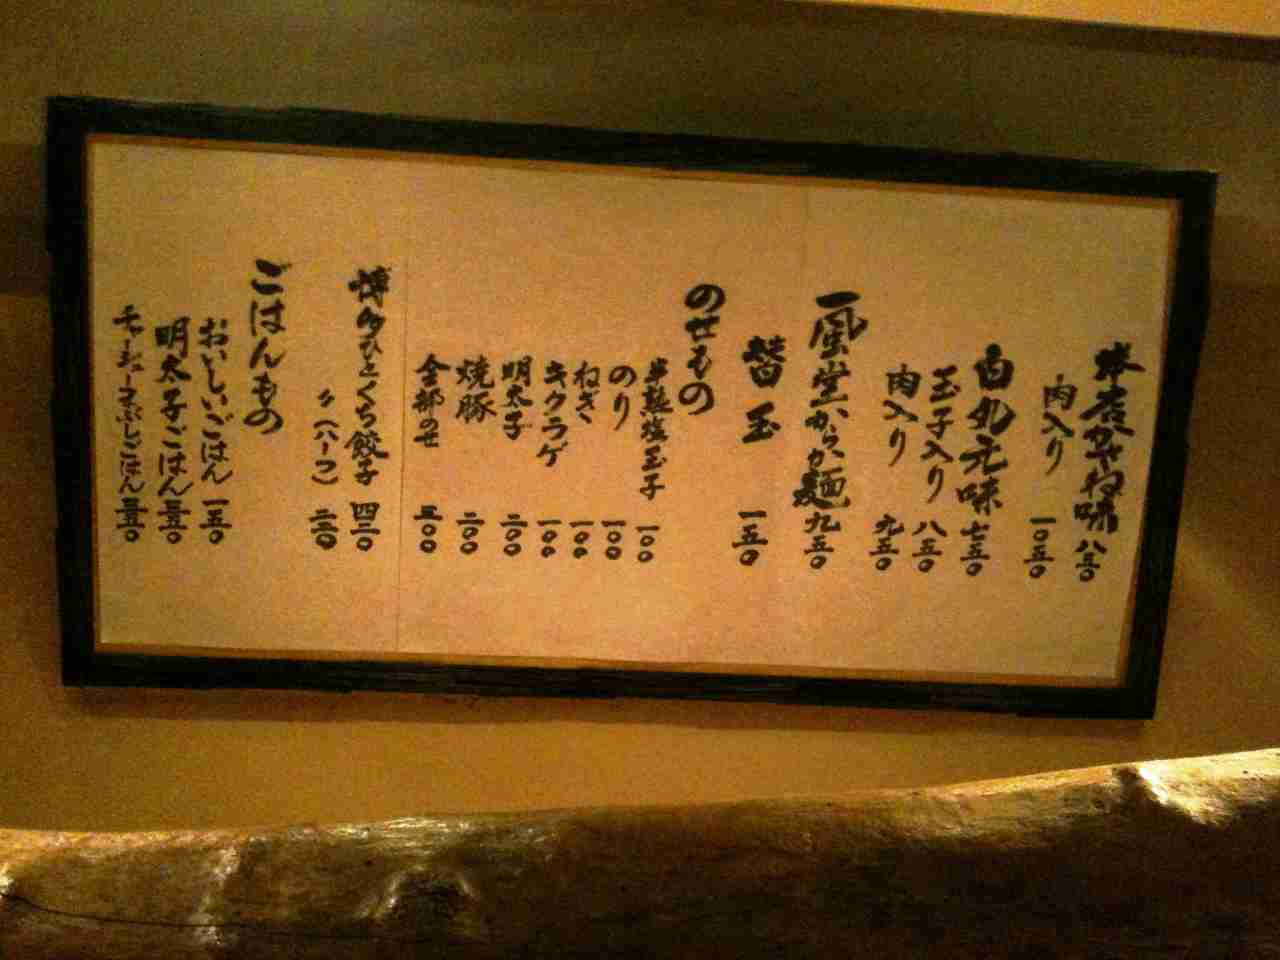 本店かさね味 八五〇
肉入り 一〇五〇
白丸元味 七五〇
玉子入り 八五〇
肉入り 九五〇
一風堂からか麺 九五〇
替玉 一五〇
のせもの
半熟塩玉子 一〇〇
のり 一〇〇
ねぎ 一〇〇
キクラゲ 一〇〇
明太子 二〇〇
焼豚 二〇〇
全部のせ 三〇〇
博多ひとくち餃子 四二〇
〃(ハーフ) 二二〇
ごはんもの
おいしいごはん 一五〇
明太子ごはん 三五〇
チャーシューまぶしごはん 三五〇